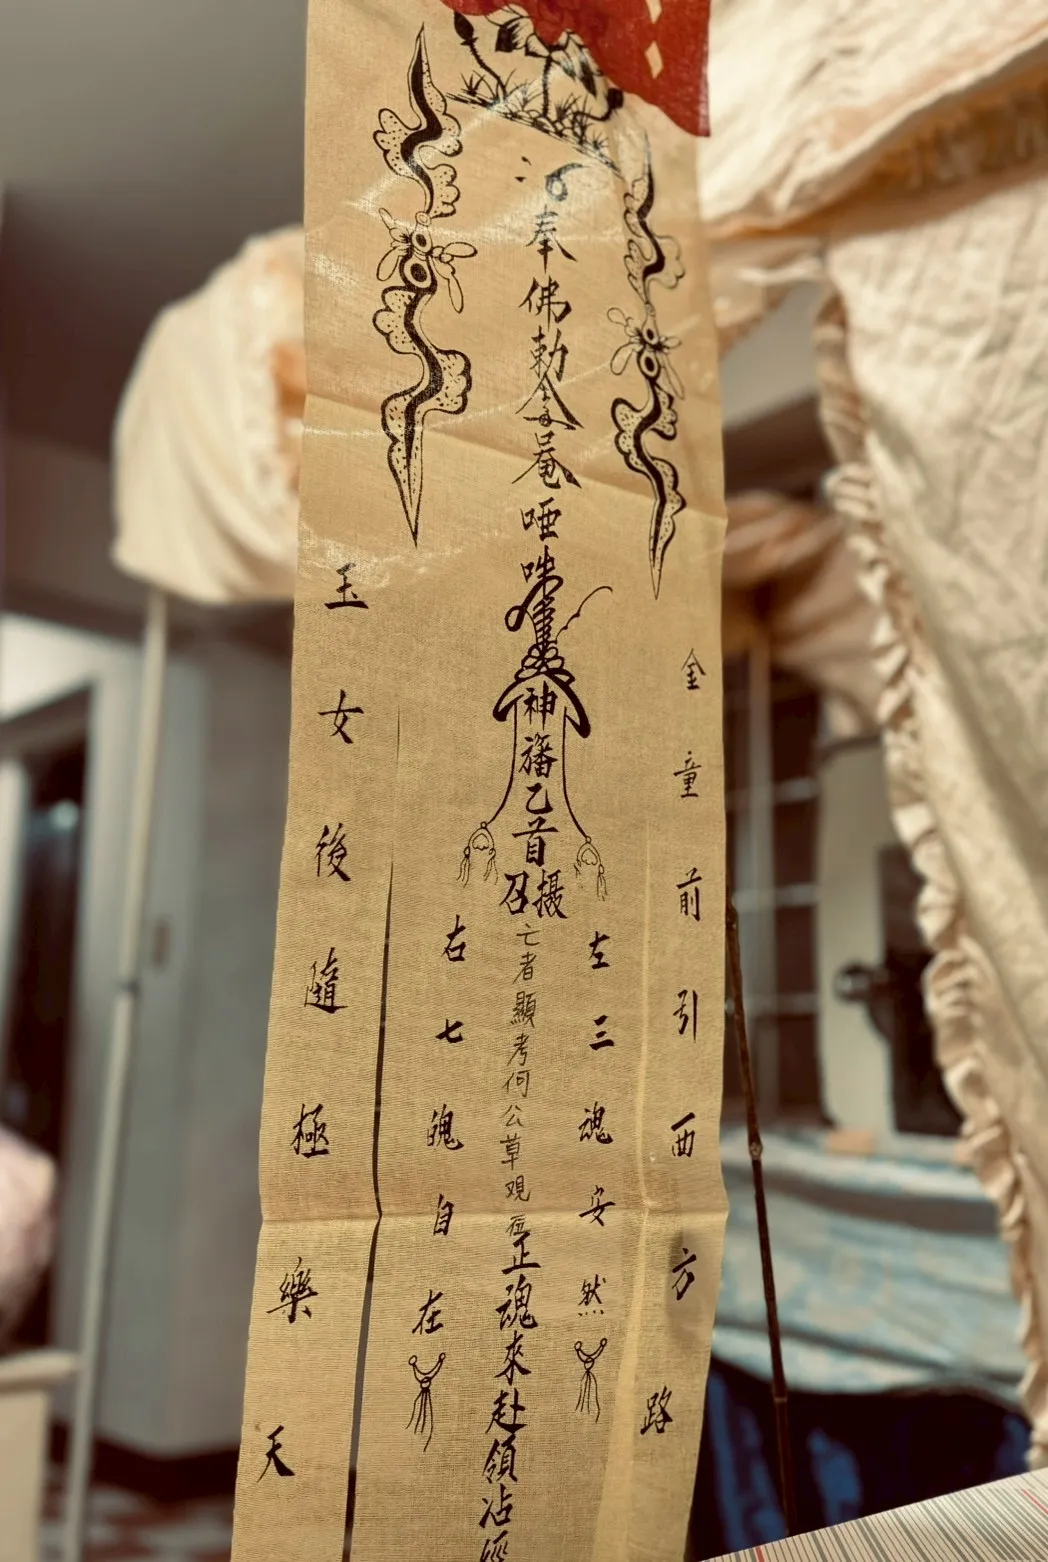 金童前引西方路
左三魂安然
奉佛勅令唵唖吽神旛乙首攝召亡者顯考何公草觀正魂來赴領沾
右七魄自在
玉女後隨極樂天